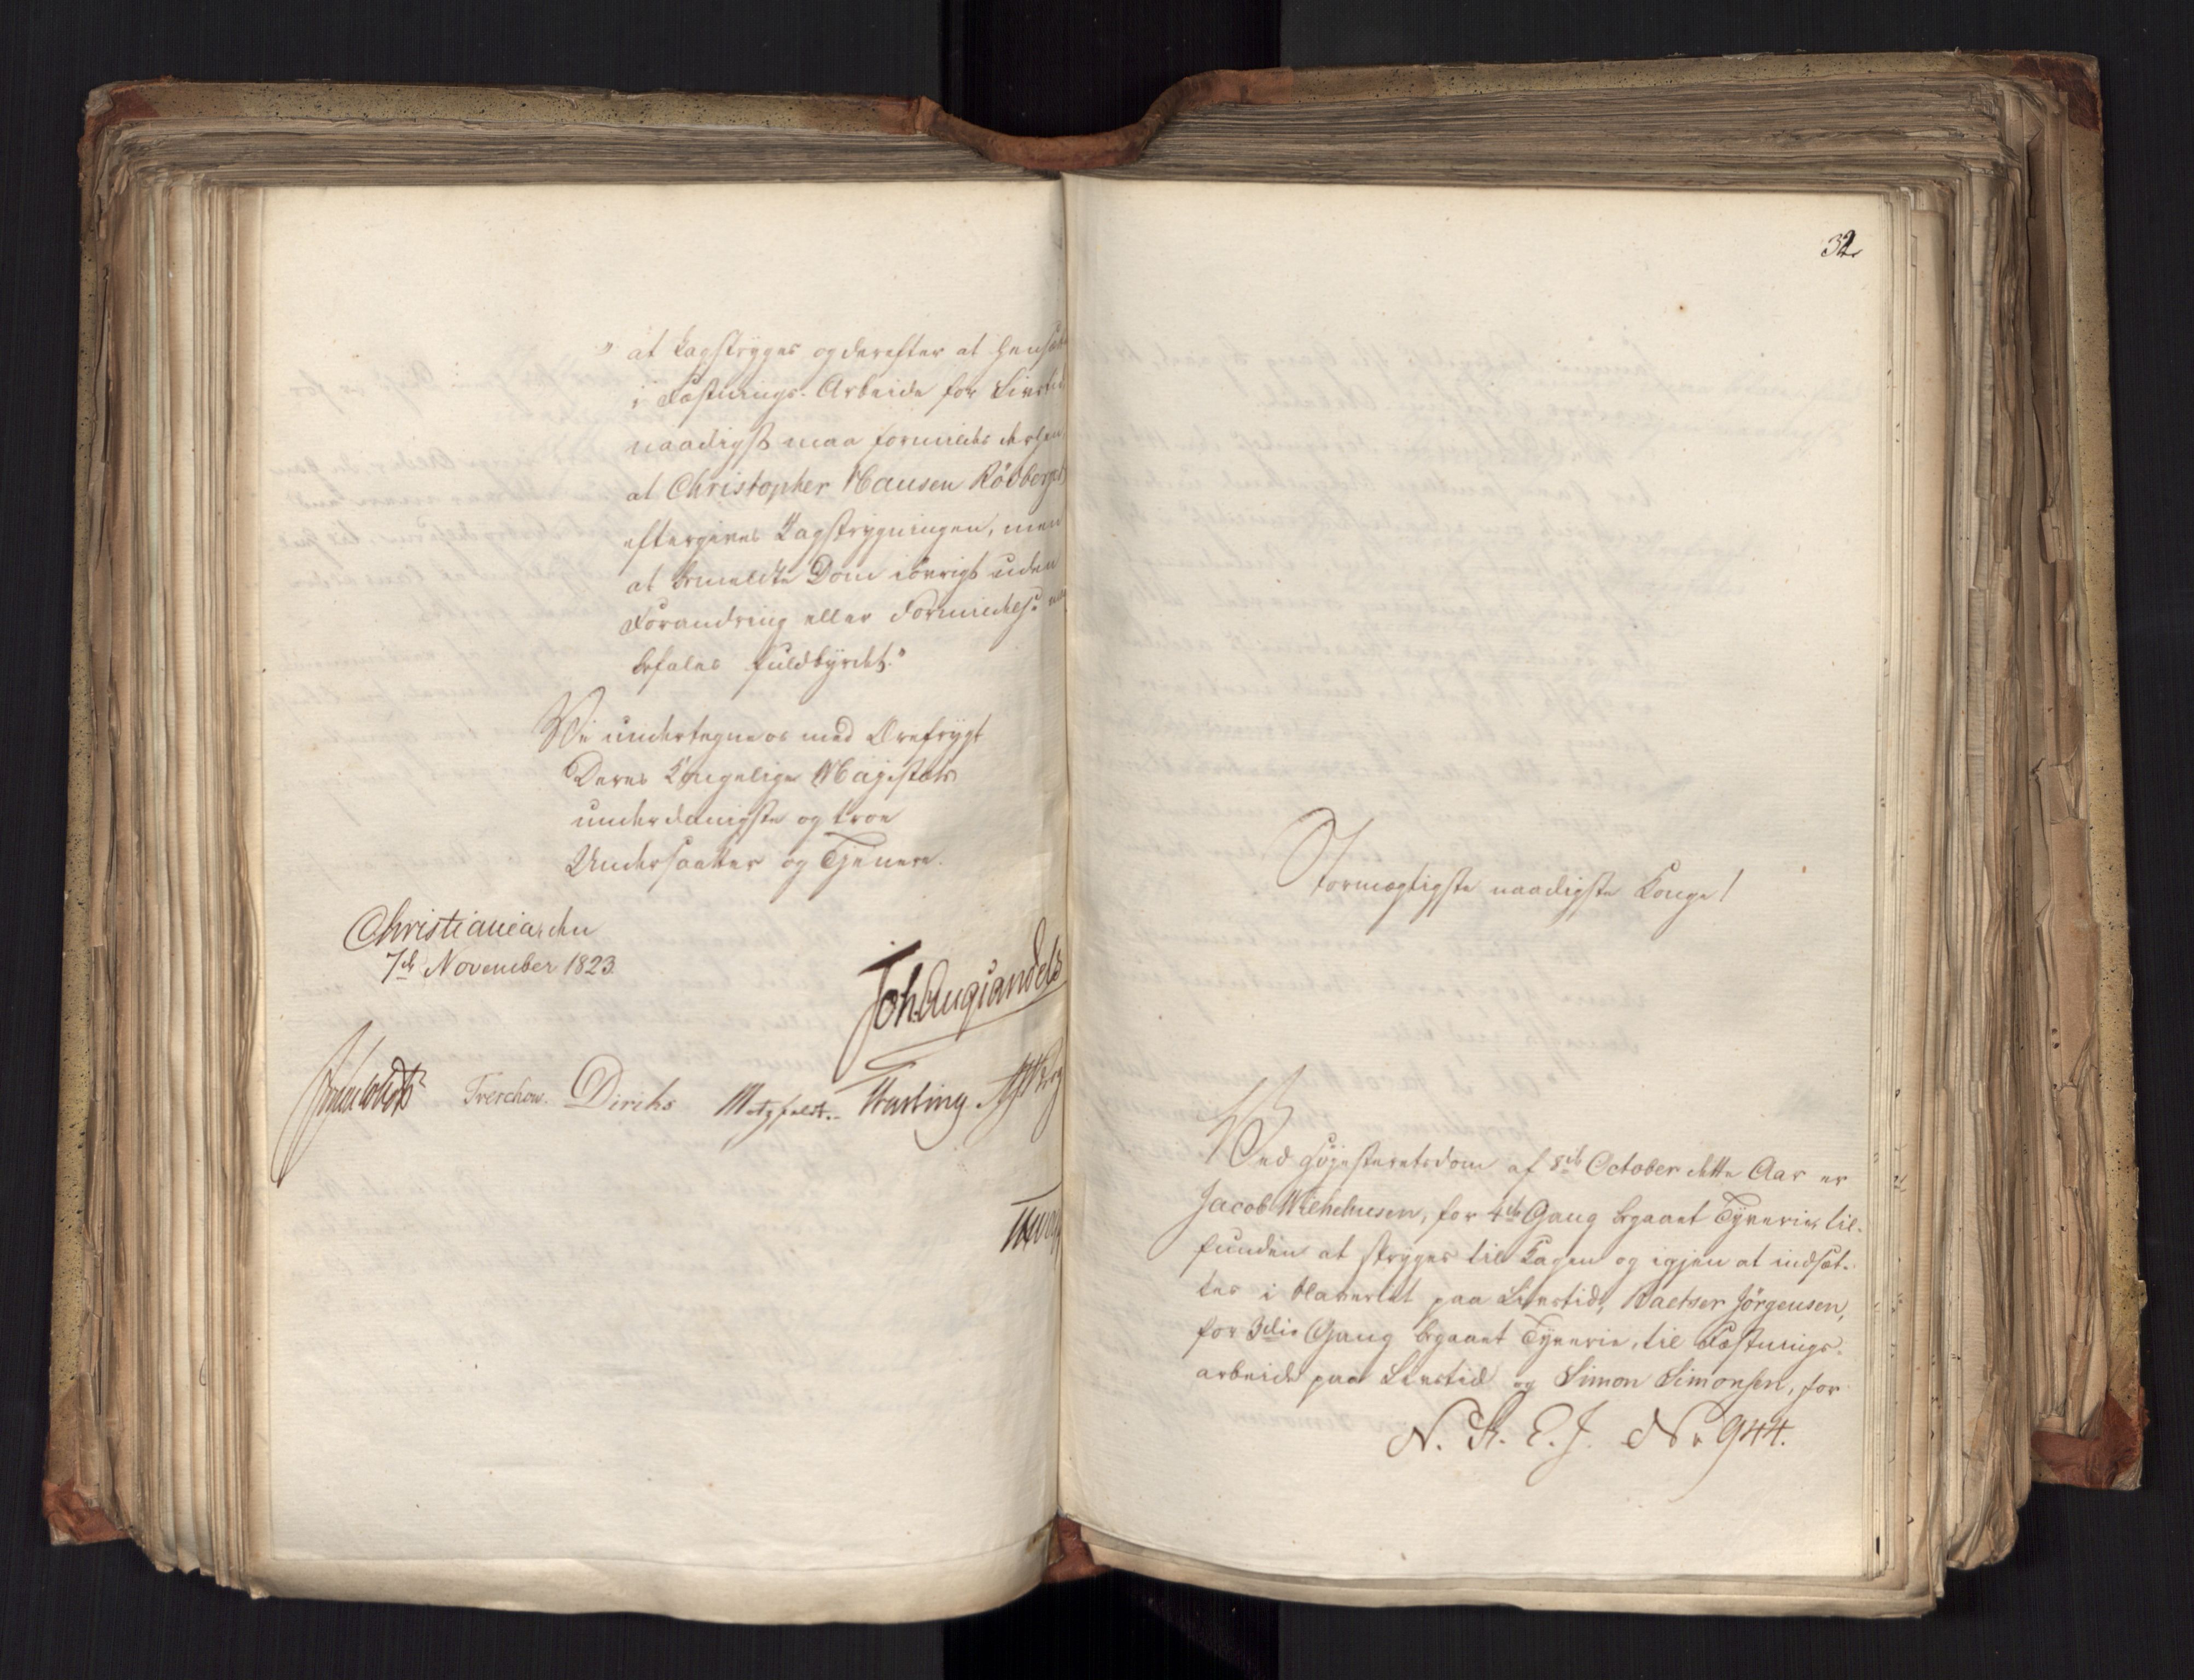 " at kagstryges og derefter at hensættes
i Fæstnings-Arbeide for Livstid
naadigst maa formildes derhen,
at Christopher Hansen Rödberget
eftergives Kagstrygningen, men
at bemeldte Dom iövrigt uden
Forandring eller Formildelse
befales fuldbyrdet."
Vi undertegne os med Ærefrygt
Deres Kongelige Majestæts
underdanigste og troe
Undersaatter og Tjenere.
Christiania, den
7de November 1823.
Joh. Aug. Sandels
Treschow. Diriks Motzfeldt. Fasting
32
Stormægtigste naadigste Konge!
Ved Höjesteretsdom af 8de October dette Aar er
Jacob Wilhelmsen, for 4de Gang begaaet Tyverie, til-
funden at stryges til Kagen og igjen at indsæt-
tes i Slaveriet paa Livstid, Baltser Jörgensen,
for 3die Gang begaaet Tyverie, til Fæstnings-
arbeide paa Livstid og Simon Simonsen, for
N. R. E. J. No 944.